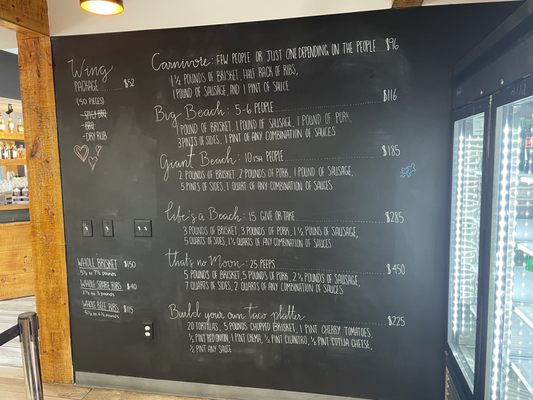 Wing
PACKAGE $52
(50 PIECES)
- SPICY BBQ
- BBQ
- DRY RUB
WHOLE BRISKET $150
WHOLE SPARE RIBS $40
WHOLE BEEF RIBS $115
Carnivore: FEW PEOPLE OR JUST ONE DEPENDING ON THE PEOPLE $96
1 ½ POUNDS OF BRISKET, HALF RACK OF RIBS,
1 POUND OF SAUSAGE, AND 1 PINT OF SAUCE
Big Beach: 5-6 PEOPLE $116
1 POUND OF BRISKET, 1 POUND OF SAUSAGE, 1 POUND OF PORK
3 PINTS OF SIDES, 1 PINT OF ANY COMBINATION OF SAUCES
Giant Beach: 10 ISH PEOPLE $185
2 POUNDS OF BRISKET, 2 POUNDS OF PORK, 1 POUND OF SAUSAGE,
5 PINTS OF SIDES, 1 QUART OF ANY COMBINATION OF SAUCES
Life's a Beach: 15 GIVE OR TAKE $285
3 POUNDS OF BRISKET, 3 POUNDS OF PORK, 1 ½ POUNDS OF SAUSAGE,
5 QUARTS OF SIDES, 1 ½ QUARTS OF ANY COMBINATION OF SAUCES
thats no Moon: 25 PEEPS $450
5 POUNDS OF BRISKET, 5 POUNDS OF PORK, 2 ½ POUNDS OF SAUSAGE,
7 QUARTS OF SIDES, 2 QUARTS OF ANY COMBINATION OF SAUCES
Build your own taco platter $225
20 TORTILLAS, 5 POUNDS CHOPPED BRISKET, 1 PINT CHERRY TOMATOES,
½ PINT RED ONION, 1 PINT CREMA, ½ PINT CILANTRO, ½ PINT COTIJA CHEESE,
½ PINT ANY SAUCE